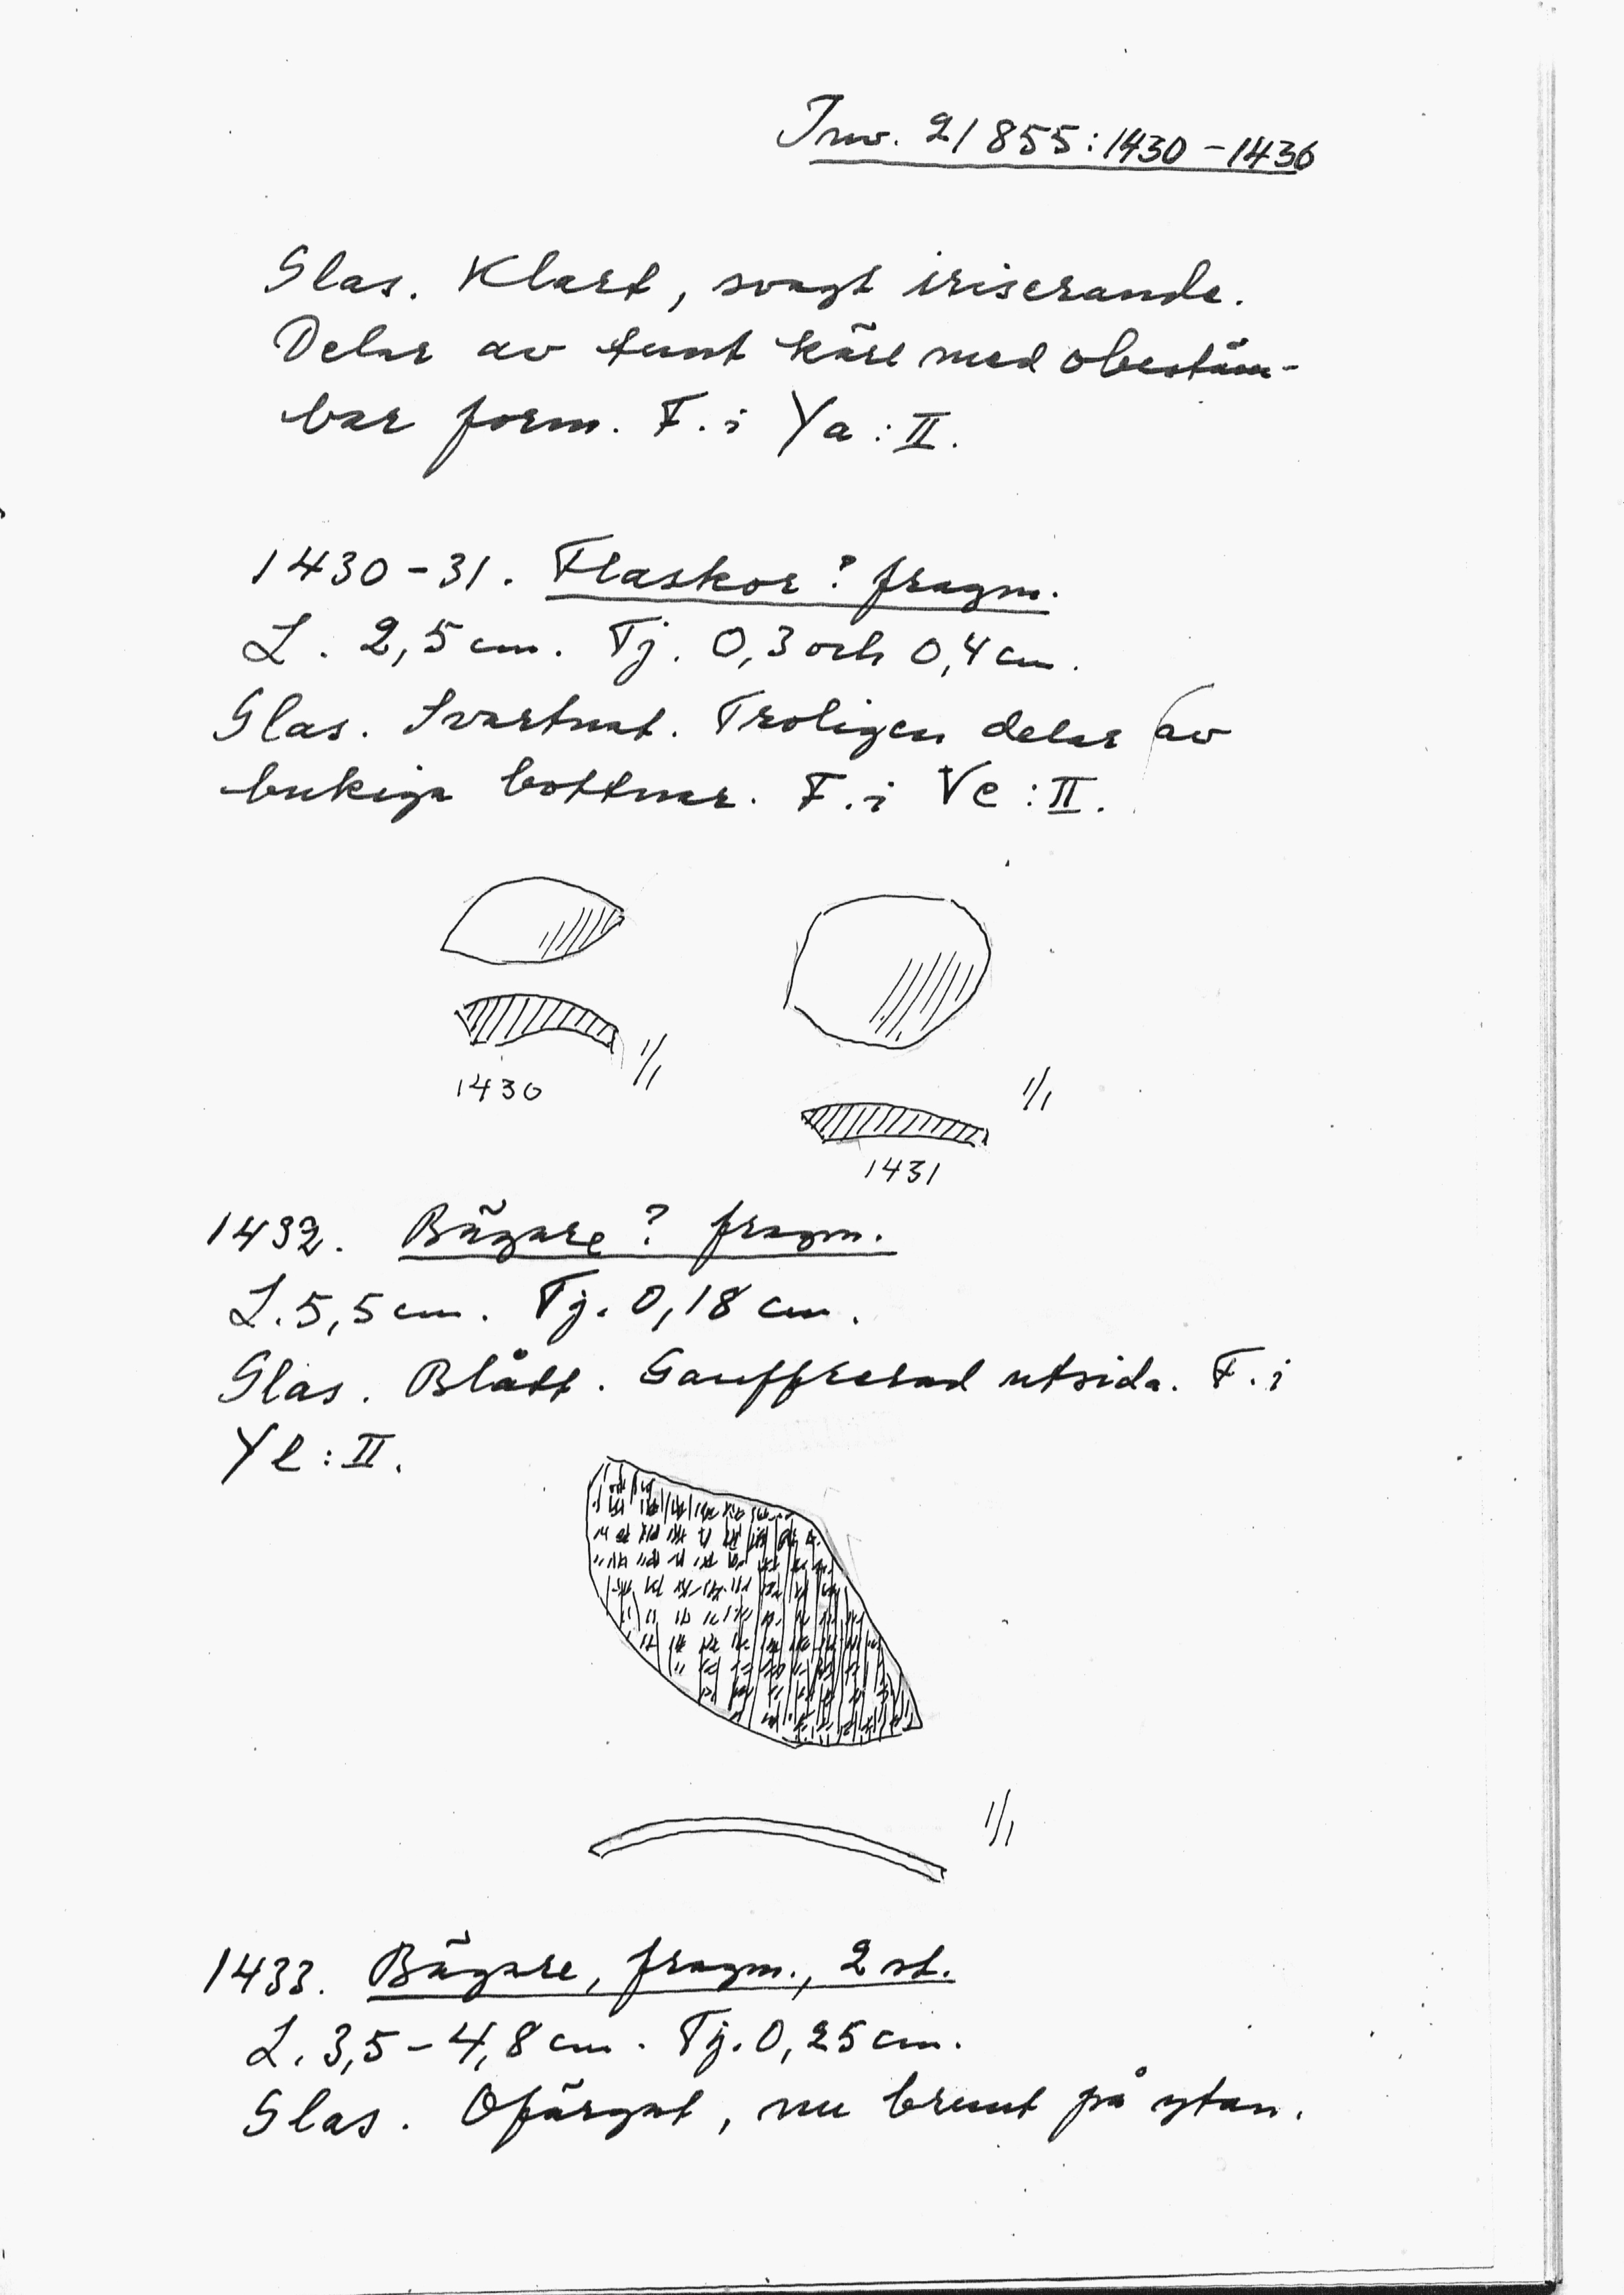 Inv. 21855:1430-1436
Glas. Klart, svagt iriserande.
Delar av tunt kärl med obestäm-
bar form. F. i Ya:II.
1430-31. Flaskor? fragm.
L. 2,5 cm. Tj. 0,3 och 0,4 cm.
Glas. Svartnat. Troligen delar av
bukiga bottnar. F. i Ve:II.
1/1
1430
1/1
1431
1432. Bägare? fragm.
L. 5,5 cm. Tj. 0,18 cm.
Glas. Blått. Gauffrerad utsida. F. i
Yl:II.
1/1
1433. Bägare, fragm., 2 st.
L. 3,5-4,8 cm. Tj. 0,25 cm.
Glas. Ofärgat, nu brunt på ytan.